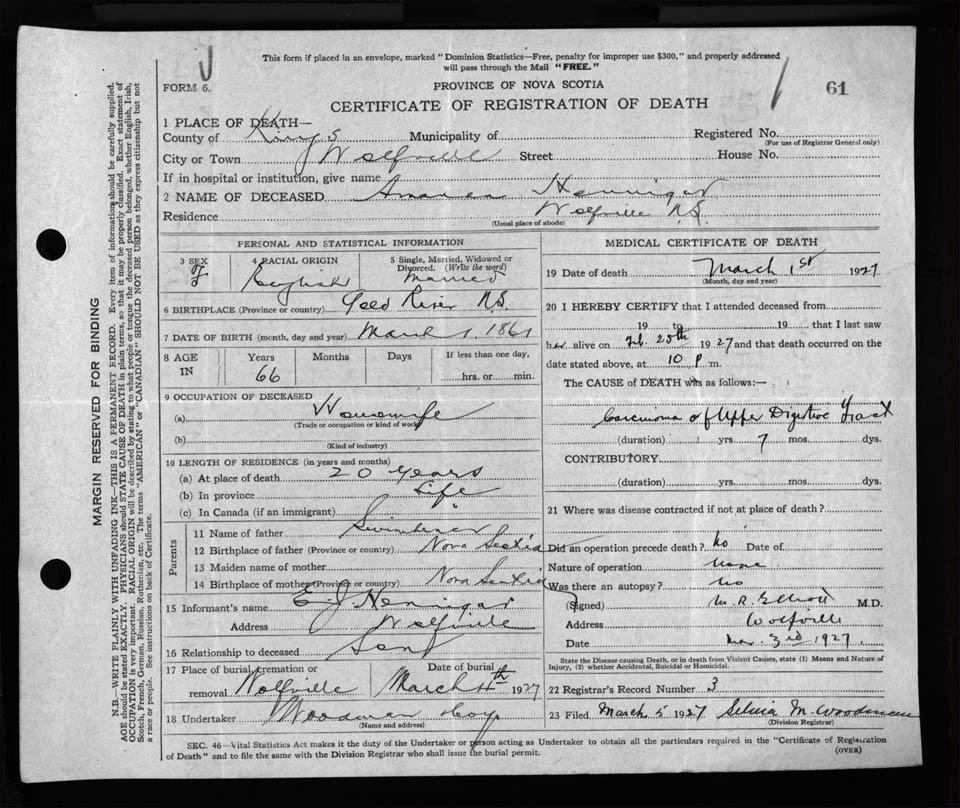 This form if placed in an envelope, marked " Dominion Statistics—Free, penalty for improper use $300," and properly addressed
will pass through the Mail "FREE."
FORM 6.
PROVINCE OF NOVA SCOTIA
61
CERTIFICATE OF REGISTRATION OF DEATH
1 PLACE OF DEATH—
County of Kings Municipality of Registered No.
(For use of Registrar General only)
City or Town Wolfville Street House No.
If in hospital or institution, give name
2 NAME OF DECEASED Henniger
Residence Wolfville N.S.
(Usual place of abode)
PERSONAL AND STATISTICAL INFORMATION
3 SEX 4 RACIAL ORIGIN 5 Single, Married, Widowed or
Divorced. (Write the word)
F English Married
6 BIRTHPLACE (Province or country) River N.S.
7 DATE OF BIRTH (month, day and year) March 1, 1861
8 AGE Years Months Days If less than one day,
IN 66 hrs. or min.
9 OCCUPATION OF DECEASED
(a) Housewife
(Trade or occupation or kind of work)
(b)
(Kind of industry)
10 LENGTH OF RESIDENCE (in years and months)
(a) At place of death 20 years
(b) In province Life
(c) In Canada (if an immigrant)
Parents
11 Name of father
12 Birthplace of father (Province or country) Nova Scotia
13 Maiden name of mother
14 Birthplace of mother (Province or country) Nova Scotia
15 Informant's name E. J. Henniger
Address Wolfville
16 Relationship to deceased Son
17 Place of burial, cremation or Date of burial
removal Wolfville March 4th 1927
18 Undertaker Woodman Coy
(Name and address)
MEDICAL CERTIFICATE OF DEATH
19 Date of death March 1st 1927
(Month, day and year)
20 I HEREBY CERTIFY that I attended deceased from
19 to 19 that I last saw
her alive on Feb. 25th 1927 and that death occurred on the
date stated above, at 10 P m.
The CAUSE of DEATH was as follows:—
Carcinoma of Upper Digestive Tract
(duration) yrs. 7 mos. dys.
CONTRIBUTORY.
(duration) yrs. mos. dys.
21 Where was disease contracted if not at place of death?
Did an operation precede death? No Date of
Nature of operation none
Was there an autopsy? No
(Signed) M. R. Elliott M.D.
Address Wolfville
Date Mar. 3rd 1927
State the Disease causing Death, or in death from Violent Causes, state (1) Means and Nature of
Injury, (2) whether Accidental, Suicidal or Homicidal.
22 Registrar's Record Number 3
23 Filed March 5 1927 M. Woodman
(Division Registrar)
SEC. 46—Vital Statistics Act makes it the duty of the Undertaker or person acting as Undertaker to obtain all the particulars required in the "Certificate of Registration
of Death" and to file the same with the Division Registrar who shall issue the burial permit.
(OVER)
MARGIN RESERVED FOR BINDING
N.B.—WRITE PLAINLY WITH UNFADING INK—THIS IS A PERMANENT RECORD. Every item of information should be carefully supplied.
AGE should be stated EXACTLY. PHYSICIANS should STATE CAUSE OF DEATH in plain terms, so that it may be properly classified. Exact statement of
OCCUPATION is very important. RACIAL ORIGIN will be described by stating to what people or tongue the deceased person belonged, whether English, Irish,
Scotch, French, German, Russian, Ruthenian, etc. The terms "AMERICAN" or "CANADIAN" SHOULD NOT BE USED as they express citizenship but not
a race or people. See instructions on back of Certificate.